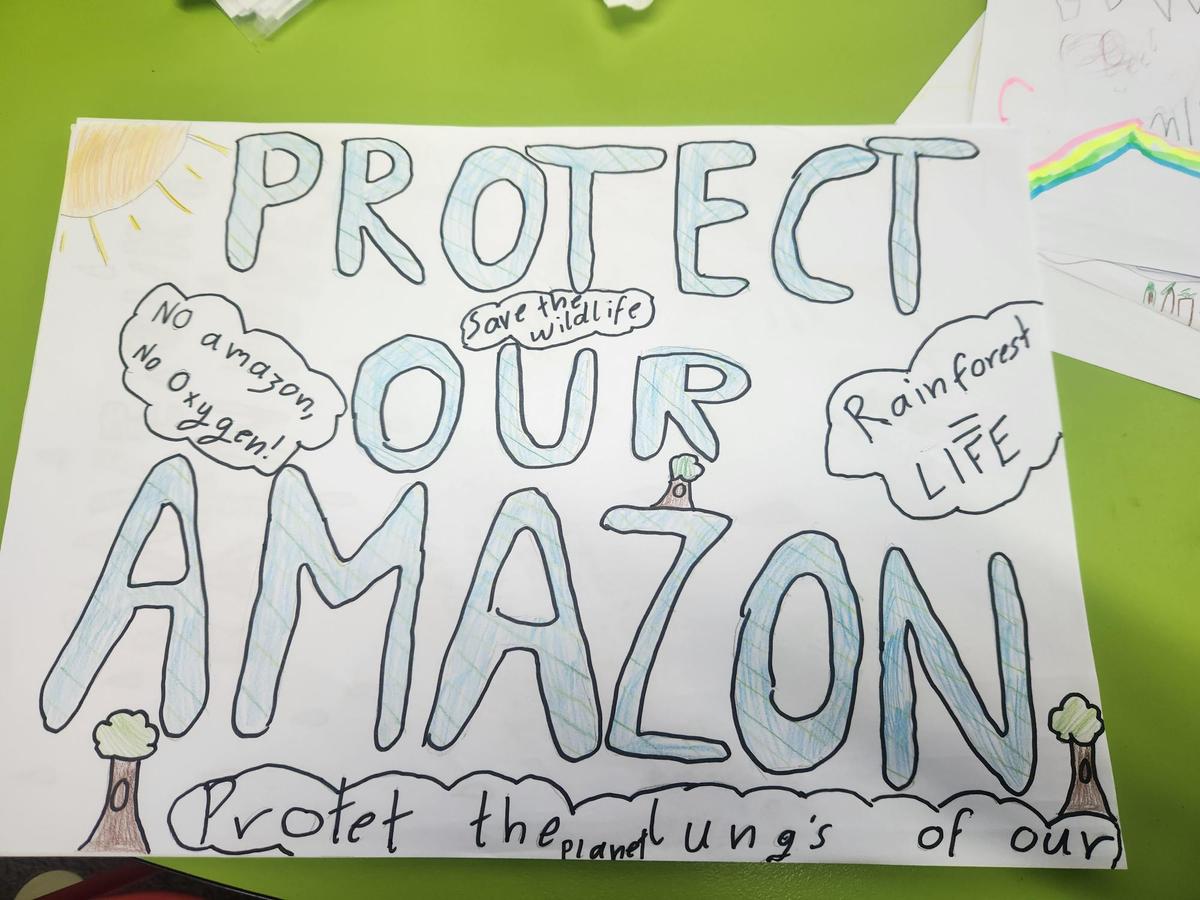 PROTECT
Save the
wildlife
NO amazon,
No Oxygen!
OUR
Rainforest
=
LIFE
AMAZON
Protet the lung's of our
planet